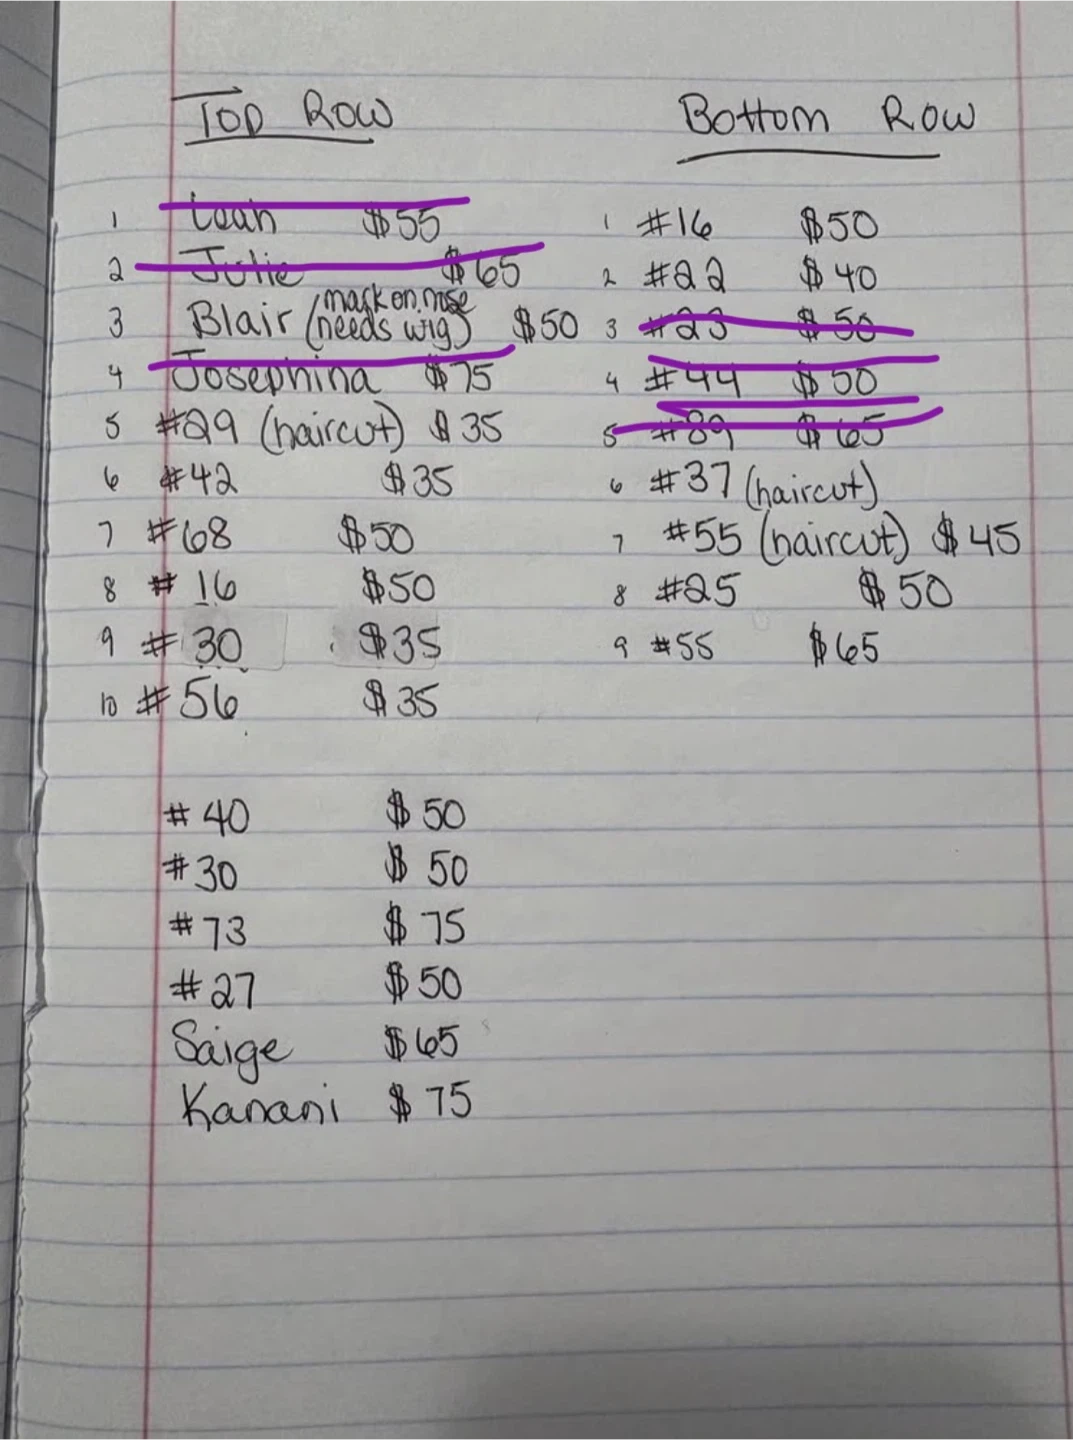 Top Row
1 Leah $55
2 Julie $65
3 Blair (mark on nose
needs wig) $50
4 Josephina $75
5 #29 (haircut) $35
6 #42 $35
7 #68 $50
8 # 16 $50
9 # 30 $35
10 # 56 $35
# 40 $50
#30 $50
#73 $75
#27 $50
Saige $65
Kanani $75
Bottom Row
1 #16 $50
2 #22 $40
3 #23 $50
4 #44 $50
5 #89 $65
6 #37 (haircut)
7 #55 (haircut) $45
8 #25 $50
9 #55 $65